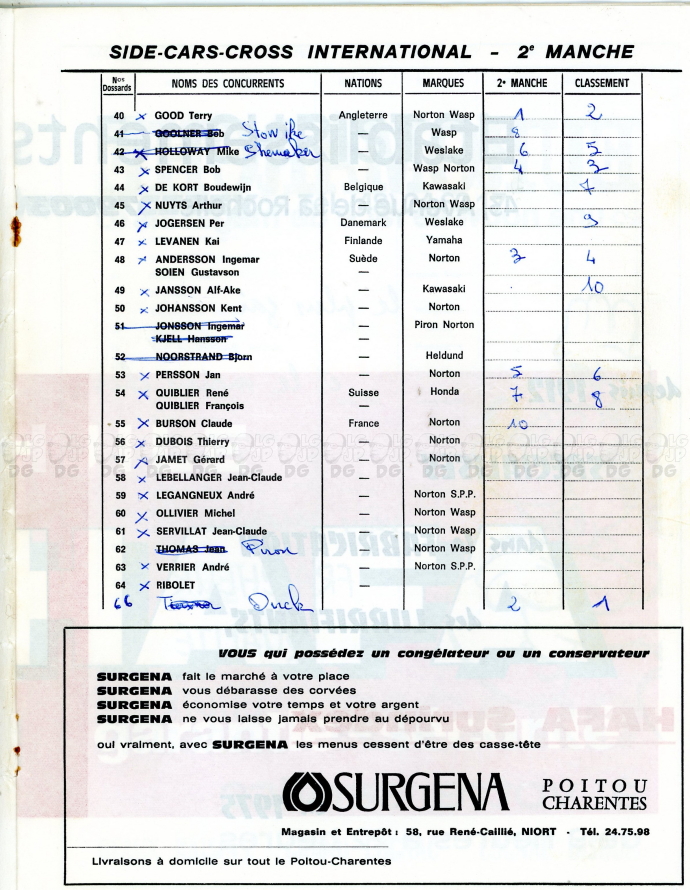 SIDE-CARS-CROSS INTERNATIONAL - 2e MANCHE
Nos Dossards NOMS DES CONCURRENTS NATIONS MARQUES 2e MANCHE CLASSEMENT
40 x GOOD Terry Angleterre Norton Wasp 1 2
41 GOOLNER Bob — Wasp 8
42 x HOLLOWAY Mike Shemaker — Weslake 6 5
43 x SPENCER Bob — Wasp Norton 4 3
44 x DE KORT Boudewijn Belgique Kawasaki 7
45 x NUYTS Arthur — Norton Wasp
46 x JOGERSEN Per Danemark Weslake 9
47 x LEVANEN Kai Finlande Yamaha
48 x ANDERSSON Ingemar Suède Norton 3 4
SOIEN Gustavson —
49 x JANSSON Alf-Ake — Kawasaki 10
50 x JOHANSSON Kent — Norton
51 JONSSON Ingemar — Piron Norton
KJELL Hansson —
52 NOORSTRAND Bjorn — Heldund
53 x PERSSON Jan — Norton 5 6
54 x QUIBLIER René Suisse Honda 7 8
QUIBLIER François —
55 x BURSON Claude France Norton 10
56 x DUBOIS Thierry — Norton
57 x JAMET Gérard — Norton
58 x LEBELLANGER Jean-Claude —
59 x LEGANGNEUX André — Norton S.P.P.
60 x OLLIVIER Michel — Norton Wasp
61 x SERVILLAT Jean-Claude — Norton Wasp
62 THOMAS Jean Piron — Norton Wasp
63 x VERRIER André — Norton S.P.P.
64 x RIBOLET —
66 Duck 2 1
VOUS qui possédez un congélateur ou un conservateur
SURGENA fait le marché à votre place
SURGENA vous débarasse des corvées
SURGENA économise votre temps et votre argent
SURGENA ne vous laisse jamais prendre au dépourvu
oui vraiment, avec SURGENA les menus cessent d'être des casse-tête
SURGENA POITOU
CHARENTES
Magasin et Entrepôt : 58, rue René-Caillié, NIORT - Tél. 24.75.98
Livraisons à domicile sur tout le Poitou-Charentes